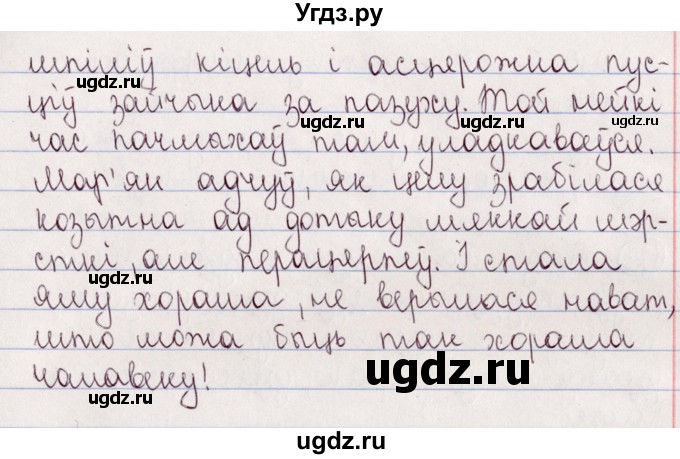 Угдз.ру
шпіліў кіцель і асцярожна пус-
ціў зайчыка за пазуху. Той нейкі
час пачмыхаў там, уладкаваўся.
Мар'ян адчуў, як яму зрабілася
козытна ад дотыку мяккай шэр-
сткі, але перацярпеў. І стала
яму хораша, не верылася нават,
што можа быць так хораша
чалавеку!
ugdz.ru
ugdz.ru
ugdz.ru
ugdz.ru
ugdz.ru
ugdz.ru
ugdz.ru
ugdz.ru
ugdz.ru
ugdz.ru